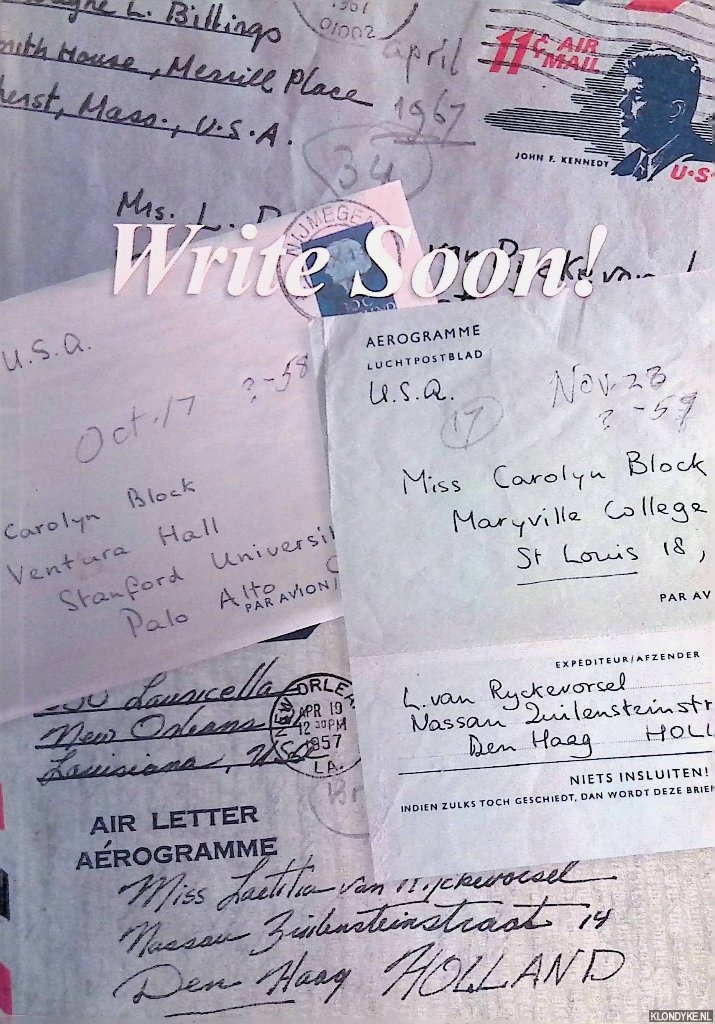 L. Billings
Smith House, Merrill Place
Mass., U.S.A.
1967
01002
april
1967
34
11¢ AIR
MAIL
JOHN F. KENNEDY
U.S
Mrs. L.
NIJMEGEN
Write Soon!
U.S.A.
Oct. 17 ? - 58
Carolyn Block
Ventura Hall
Stanford Universi
Palo Alto
PAR AVION
AEROGRAMME
LUCHTPOSTBLAD
U.S.A.
17
Nov. 23
? - 59
Miss Carolyn Block
Maryville College
St Louis 18,
PAR AV
EXPÉDITEUR/AFZENDER
L. van Ryckevorsel
Nassau Zuilensteinstr
Den Haag HOLL
NIETS INSLUITEN!
INDIEN ZULKS TOCH GESCHIEDT, DAN WORDT DEZE BRIEF
New Orleans
Louisiana, USA
NEW ORLEA
APR 19
12 30 PM
1957
LA.
Br
AIR LETTER
AÉROGRAMME
Miss Laetitia van Rijckevorsel
Nassau Zuilensteinstraat 14
Den Haag HOLLAND
KLONDYKE.NL